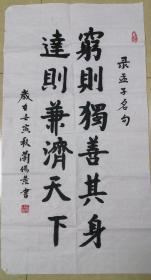 录孟子名句
窮則獨善其身
達則兼濟天下
歲甘壬寅秋蘭陽豪書